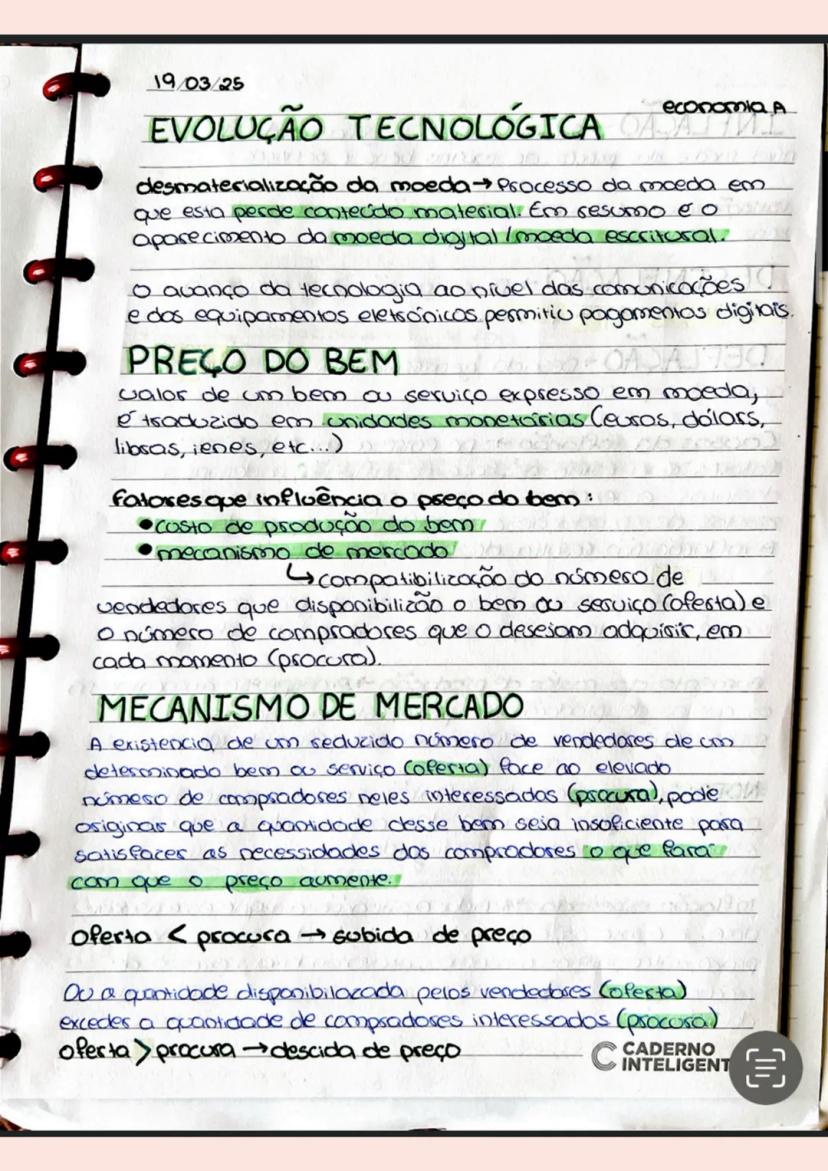 19/03/25
economia A
EVOLUÇÃO TECNOLÓGICA
desmaterialização da moeda → Processo da moeda em
que esta perde conteúdo material. Em resumo é o
aparecimento da moeda digital/moeda escritural.
O avanço da tecnologia ao nível das comunicações
e dos equipamentos eletrónicos permitiu pagamentos digitais.
PREÇO DO BEM
valor de um bem ou serviço expresso em moeda,
é traduzido em unidades monetárias (euros, dólars,
libras, ienes, etc...)
fatores que influência o preço do bem:
• custo de produção do bem
• mecanismo de mercado
↳ compatibilização do número de
vendedores que disponibilizão o bem ou serviço (oferta) e
o número de compradores que o desejam adquirir, em
cada momento (procura).
MECANISMO DE MERCADO
A existencia de um reduzido número de vendedores de um
determinado bem ou serviço (oferta) face ao elevado
número de compradores neles interessados (procura), pode
originar que a quantidade desse bem seja insuficiente para
satisfazer as necessidades dos compradores o que fará
com que o preço aumente.
oferta < procura → subida de preço
Ou a quantidade disponibilazada pelos vendedores (oferta)
exceder a quantidade de compradores interessados (procura)
oferta > procura → descida de preço
CADERNO
INTELIGENT